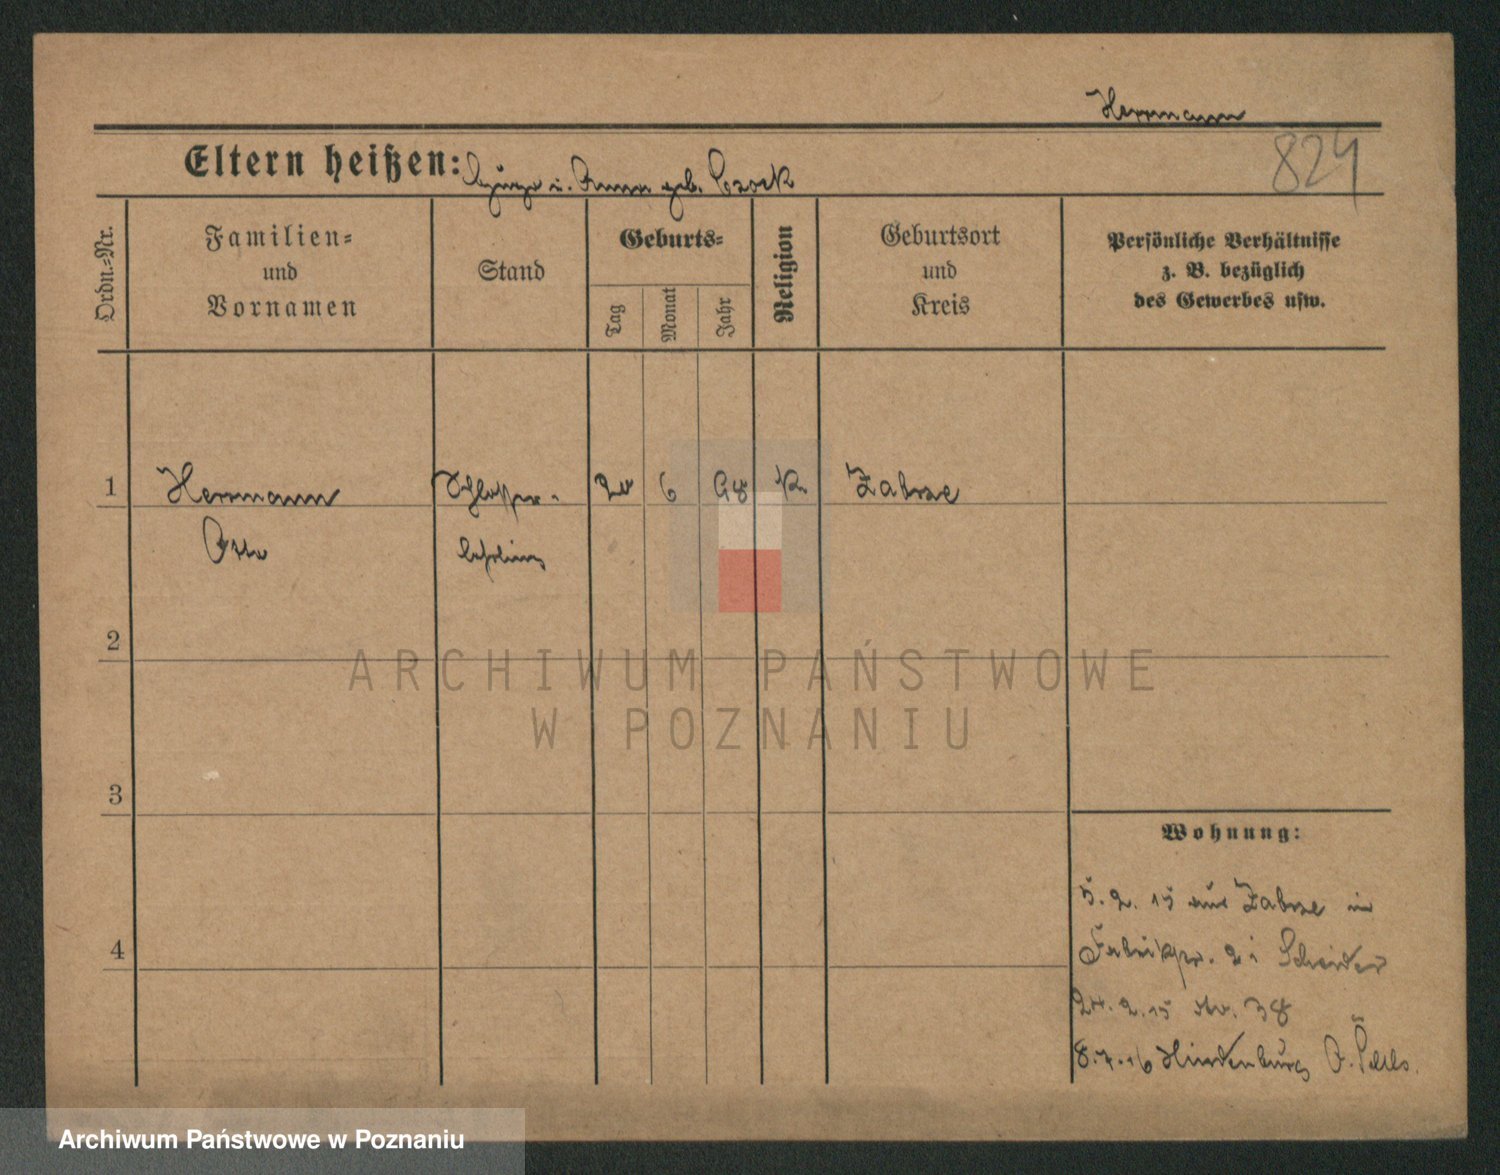 Herrmann
824
Eltern heißen: u. Anna geb. Czock
Ordn.=Nr.
Familien=
und
Vornamen
Stand
Geburts=
Tag
Monat
Jahr
Religion
Geburtsort
und
Kreis
Persönliche Verhältnisse
z. B. bezüglich
des Gewerbes usw.
1 Herrmann Schlosser- 6 98 K. Zabrze
Otto lehrling
2
3
4
Wohnung:
5. 2. 15 aus Zabrze in
Fabrikstr. bei
2. 15 38
8. 7. 16 Hindenburg O. Schls.
ARCHIWUM PAŃSTWOWE
W POZNANIU
Archiwum Państwowe w Poznaniu